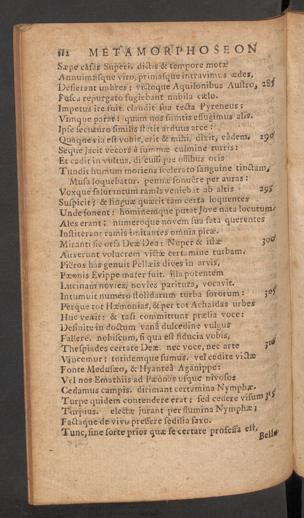 112 METAMORPHOSEON
Sæpe casas Superi. dictis & tempore motæ
Annuimusque viro, primasque intravimus ædes.
Desierant imbres: victoque Aquilonibus Austro, 285
Fusca repurgato fugiebant nubila cælo.
Impetus ire fuit. claudit sua tecta Pyreneus;
Vimque parat: quam nos sumtis effugimus alis.
Ipse secuturo similis stetit arduus arce:
Quaque via est vobis, erit & mihi, dixit, eâdem. 290
Seque jacit vecors è summæ culmine turris:
Et cadit in vultus, discussique ossibus oris
Tundit humum moriens scelerato sanguine tinctam.
Musa loquebatur. pennæ sonuêre per auras:
Voxque salutantum ramis veniebat ab altis. 295
Suspicit; & linguæ quærit tam certa loquentes
Unde sonent: hominemque putat Jove nata locutum.
Ales erant: numeroque novem sua fata querentes
Institerant ramis imitantes omnia picæ.
Miranti sic orsa Deæ Dea: Nuper & istæ 300
Auxerunt volucrem victæ certamine turbam.
Pieros has genuit Pellæis dives in arvis,
Pæonis Evippe mater fuit. illa potentem
Lucinam novies, novies paritura, vocavit.
Intumuit numero stolidarum turba sororum: 305
Perque tot Hæmonias, & per tot Achaïdas urbes
Huc venit: & tali committunt prælia voce:
Desinite indoctum vanâ dulcedine vulgus
Fallere. nobiscum, si qua est fiducia vobis,
Thespiades certate Deæ nec voce, nec arte 310
Vincemur: totidemque sumus. vel cedite victæ
Fonte Medusæo, & Hyanteâ Aganippe:
Vel nos Emathiis ad Pæonas usque nivosos
Cedamus campis. dirimant certamina Nymphæ.
Turpe quidem contendere erat; sed cedere visum 315
Turpius. electæ jurant per flumina Nymphæ;
Factaque de vivo pressere sedilia saxo.
Tunc, sine sorte prior quæ se certare professa est,
Bella